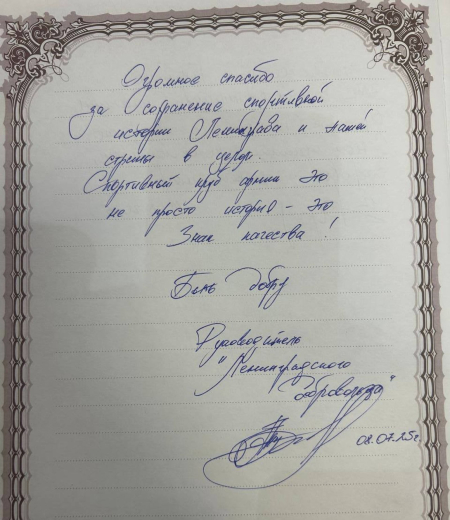 Огромное спасибо
за сохранение спортивной
истории Ленинграда и нашей
страны в целом.
Спортивный клуб армии это
не просто история - это
Знак качества!
Быть добру
Руководитель
"Ленинградского
Добровольца"
02.07.25г.